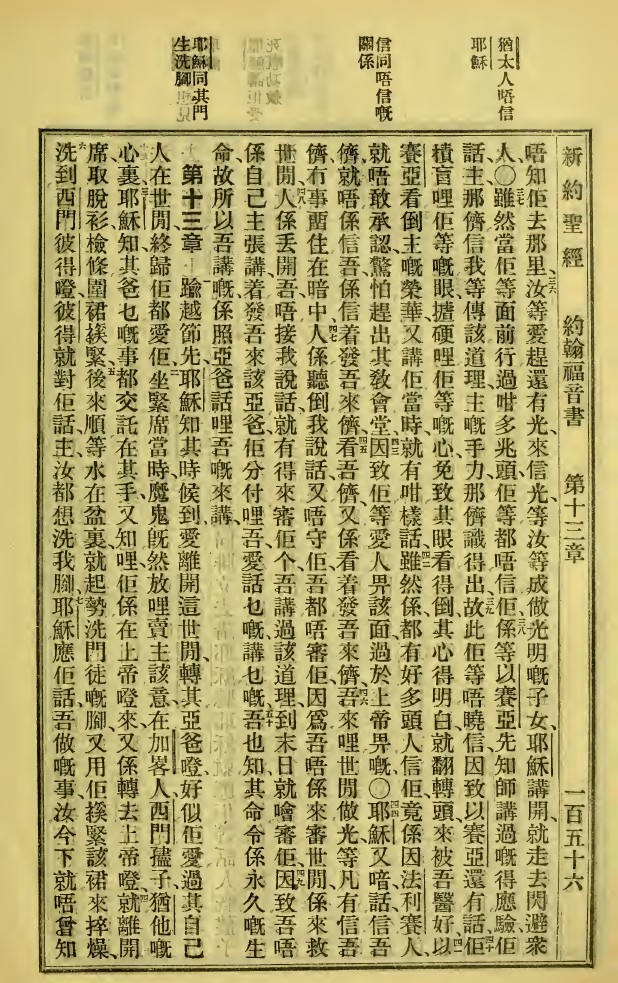 新約聖經 約翰福音書 第十三章 一百五十六
猶太人唔信
耶穌
信同唔信嘅
關係
耶穌同其門
生洗腳
唔知佢去那里、三六汝等愛趕還有光來信光、等汝等成做光明嘅子女、耶穌講開、就走去閃避衆
人、〇三七雖然當佢等面前行過咁多兆頭、佢等都唔信佢、三八係等以賽亞先知師講過嘅得應驗、佢
話、主、那儕信我等傳該道理、主嘅手力那儕識得出、三九故此佢等唔曉信、因致以賽亞還有話、四十佢
積盲哩佢等嘅眼、摭硬哩佢等嘅心、免致其眼看得倒、其心得明白、就翻轉頭來、被吾醫好、四一以
賽亞看倒主嘅榮華、又講佢、當時就有咁樣話、四二雖然係都有好多頭人信佢、竟係因法利賽人、
就唔敢承認、驚怕趕出其教會堂、四三因致佢等愛人畀該面過於上帝畀嘅、〇四四耶穌又喑話、信吾
儕、就唔係信吾、係信着發吾來儕、四五看吾儕、又係看着發吾來儕、四六吾來哩世間做光、等凡有信吾
儕、冇事畱住在暗中、四七人係聽倒我說話、又唔守佢、吾都唔審佢、因爲吾唔係來審世間、係來救
世間、四八人係丟開吾、唔接我說話、就有得來審佢个、吾講過該道理、到末日就噲審佢、四九因致吾唔
係自己主張講、着發吾來該亞爸、佢分付哩吾、愛話乜嘅講乜嘅、五十吾也知其命令係永久嘅生
命、故所以吾講嘅、係照亞爸話哩吾嘅來講、
第十三章 一踰越節先、耶穌知其時候到、愛離開這世間、轉其亞爸嶝、好似佢愛過其自己
人在世間、終歸佢都愛佢、二坐緊席當時、魔鬼旣然放哩賣主該意在加畧人西門孻子猶他嘅
心裏、三耶穌知其爸乜嘅事都交託在其手、又知哩佢係在上帝嶝來、又係轉去上帝嶝、四就離開
席、取脫衫、檢條圍裙、㨢緊、五後來順等水在盆裏、就起勢洗門徒嘅腳、又用佢㨢緊該裙來捽燥、
六洗到西門彼得嶝、彼得就對佢話、主、汝都想洗我腳、七耶穌應佢話、吾做嘅事、汝今下就唔曾知